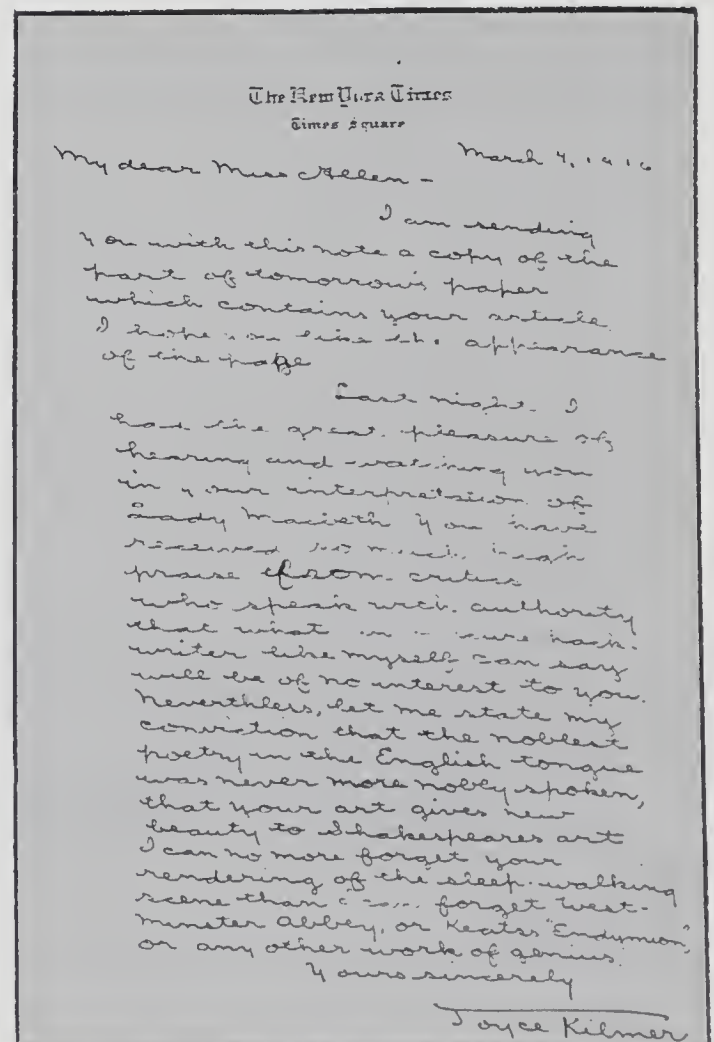 The New York Times
Times Square
March 4, 1916
My dear Miss Allen -
I am sending
you with this note a copy of the
part of tomorrow's paper
which contains your article.
I hope you like the appearance
of the page
Last night I
had the great pleasure of
hearing and watching you
in your interpretation of
Lady Macbeth You have
received so much high
praise from critics
who speak with authority
that what an obscure hack-
writer like myself can say
will be of no interest to you.
Neverthless, let me state my
conviction that the noblest
poetry in the English tongue
was never more nobly spoken,
that your art gives new
beauty to Shakespeares art
I can no more forget your
rendering of the sleep-walking
scene than I can forget West-
minster Abbey, or Keats's "Endymion",
or any other work of genius.
Yours sincerely
Joyce Kilmer